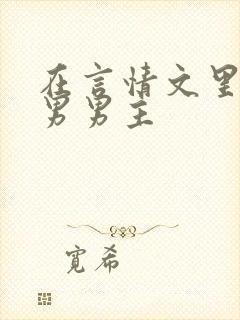 在言情文里
男男主
宽希